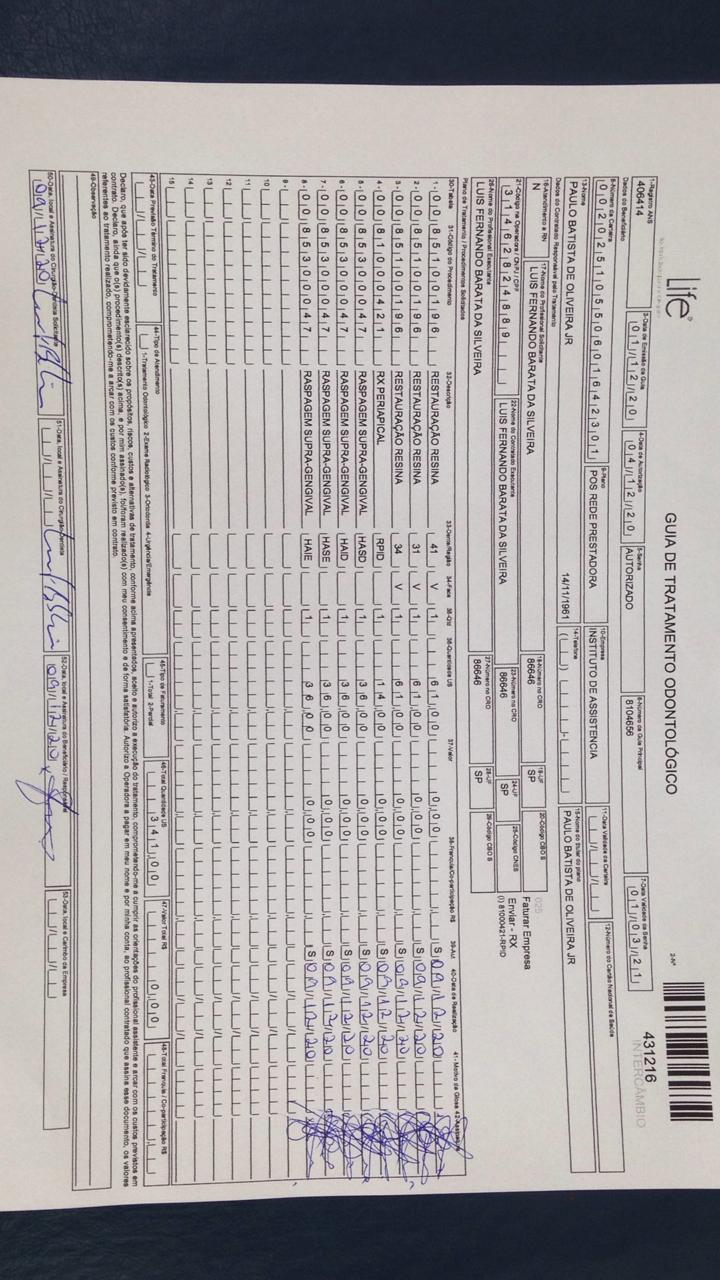 Life®
GUIA DE TRATAMENTO ODONTOLÓGICO
2-Nº
431216
INTERCÂMBIO
1-Registro ANS
406414
3-Data de Emissão da Guia
01/12/20
4-Data de Autorização
04/12/20
5-Senha
AUTORIZADO
6-Número da Guia Principal
8104656
7-Data Validade da Senha
01/03/21
Dados do Beneficiário
8-Número da Carteira
00202510550601642301
9-Plano
POS REDE PRESTADORA
10-Empresa
INSTITUTO DE ASSISTENCIA
11-Data Validade da Carteira
12-Número do Cartão Nacional de Saúde
13-Nome
PAULO BATISTA DE OLIVEIRA JR
14/11/1961
14-Telefone
15-Nome do titular do plano
PAULO BATISTA DE OLIVEIRA JR
Dados do Contratado Responsável pelo Tratamento
16-Atendimento a RN
N
17-Nome do Profissional Solicitante
LUIS FERNANDO BARATA DA SILVEIRA
18-Número no CRO
86646
19-UF
SP
20-Código CBO S
025
Faturar Empresa
Enviar - RX
(I) 81000421-RPID
21-Código na Operadora / CNPJ / CPF
31462824889
22-Nome do Contratado Executante
LUIS FERNANDO BARATA DA SILVEIRA
23-Número no CRO
86646
24-UF
SP
25-Código CNES
26-Nome do Profissional Executante
LUIS FERNANDO BARATA DA SILVEIRA
27-Número no CRO
86646
28-UF
SP
29-Código CBO S
Plano de Tratamento / Procedimentos Solicitados
30-Tabela 31-Código do Procedimento 32-Descrição 33-Dente/Região 34-Face 35-Qtd 36-Quantidade US 37-Valor 38-Franquia/Co-participação R$ 39-Aut 40-Data de Realização 41-Motivo de Glosa 42-Assinatura
1- 00 85100196 RESTAURAÇÃO RESINA 41 V 1 61,00 0,00 S 09/12/20
2- 00 85100196 RESTAURAÇÃO RESINA 31 V 1 61,00 0,00 S 09/12/20
3- 00 85100196 RESTAURAÇÃO RESINA 34 V 1 61,00 0,00 S 09/12/20
4- 00 81000421 RX PERIAPICAL RPID 1 14,00 0,00 S 09/12/20
5- 00 85300047 RASPAGEM SUPRA-GENGIVAL HASD 1 36,00 0,00 S 09/12/20
6- 00 85300047 RASPAGEM SUPRA-GENGIVAL HAID 1 36,00 0,00 S 09/12/20
7- 00 85300047 RASPAGEM SUPRA-GENGIVAL HASE 1 36,00 0,00 S 09/12/20
8- 00 85300047 RASPAGEM SUPRA-GENGIVAL HAIE 1 36,00 0,00 S 09/12/20
9-
10
11
12
13
14
15
43-Data Previsão Término do Tratamento
44-Tipo de Atendimento
1-Tratamento Odontológico 2-Exame Radiológico 3-Ortodontia 4-Urgência/Emergência
45-Tipo de Faturamento
1-Total 2-Parcial
46-Total Quantidade US
341,00
47-Valor Total R$
0,00
48-Total Franquia / Co-participação R$
Declaro, que após ter sido devidamente esclarecido sobre os propósitos, riscos, custos e alternativas de tratamento, conforme acima apresentados, aceito e autorizo a execução do tratamento, comprometendo-me a cumprir as orientações do profissional assistente e arcar com os custos previstos em
contrato. Declaro, ainda que o(s) procedimento(s) descrito(s) acima, e por mim assinado(s), foi/foram realizado(s) com meu consentimento e de forma satisfatória. Autorizo a Operadora a pagar em meu nome e por minha conta, ao profissional contratado que assina esse documento, os valores
referentes ao tratamento realizado, comprometendo-me a arcar com os custos conforme previsto em contrato.
49-Observação
50-Data, local e Assinatura do Cirurgião-Dentista Solicitante
09/12/20
51-Data, local e Assinatura do Cirurgião-Dentista
52-Data, local e Assinatura do Beneficiário / Responsável
09/12/20 x
53-Data, local e Carimbo da Empresa